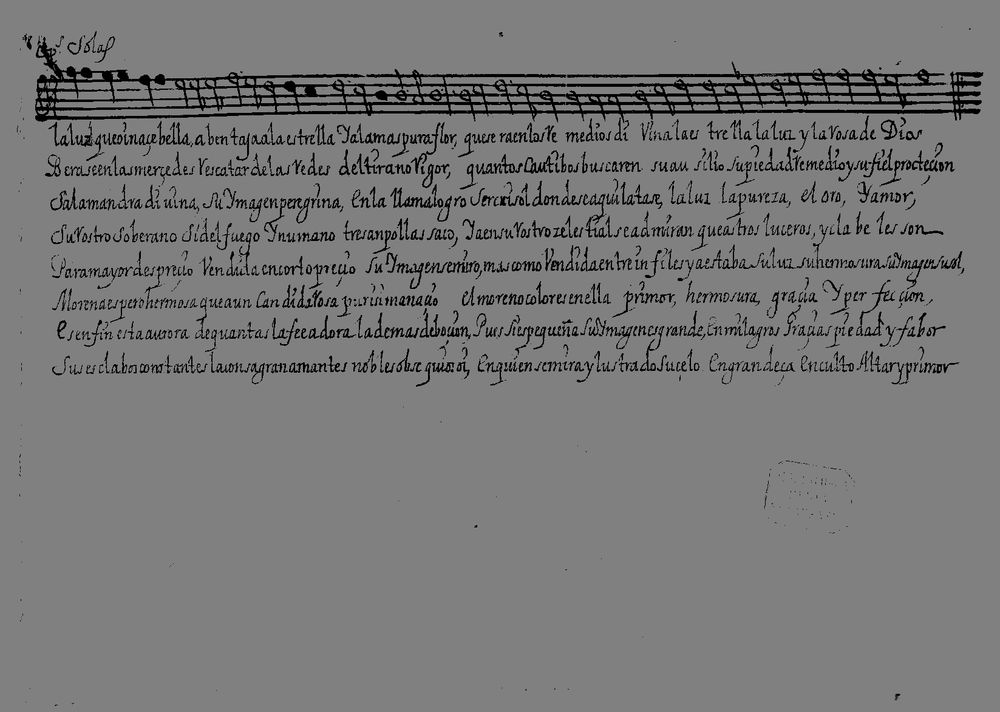 Cop.s Solas
la luz que oi naçe bella, abentaja a la estrella Y a la mas pura flor, que se ra en los Re medios di Vina la es tre lla la luz y la Rosa de Dios
Beraseen las merçedes Rescatar de las Redes del tirano Rigor, quantos Cautibos buscaren su au silio su piedad Remedio y su fiel protecçion
Salamandra di uina, su Ymagen peregrina, en la llama logro ser crisol donde se aquilatase, la luz la pureza, el oro, Y amor,
Su Rostro soberano si del fuego Ynumano tres anpollas saco, Ya en su Rostro zelestial se admiran quea tros luceros, y cla be les son
Para mayor despreçio Vendida en corto preçio su Ymagen se miro, mas como Vendida entre in fi les ya estaba su luz su hermosura su Ymagen su sol,
Morena es pero hermosa que aun Can di da Rosa purissima naçio el moreno color es en ella primor, hermosura, graçia Y per fecçion,
Es en fin esta aurora de quantas la fee adora la de mas deboçion, Pues si es pequeña su Ymagen es grande, en milagros Graçias piedad y fabor
Sus esclabos constantes la consagran amantes nobles obse quios oi, En quien se mira y lustrado su çelo. En grandeça En culto Altar y primor